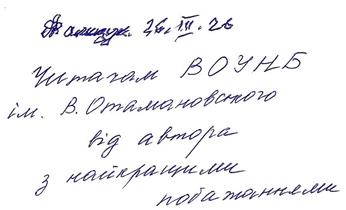 26.III.26
Читачам ВОУНБ
ім. В.Отамановського
від автора
з найкращими
побажаннями